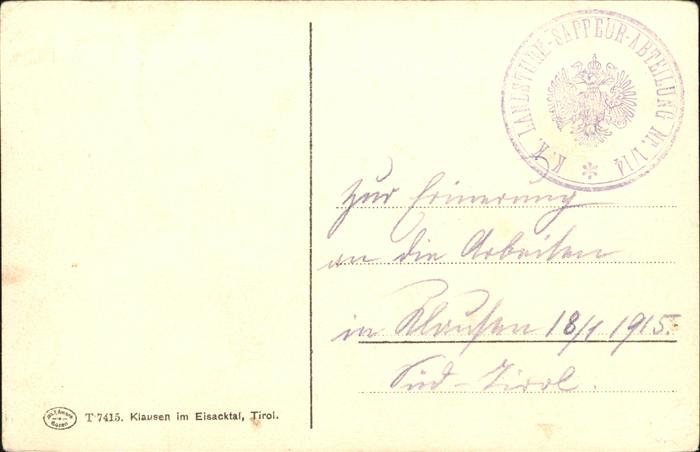 K. K. LANDSTURM-SAPPEUR-ABTEILUNG Nr. 1/14
Zur Erinerung
an die Arbeiten
in Klausen 18/1 1915.
Süd-Tirol.
T 7415. Klausen im Eisacktal, Tirol.
Bozen